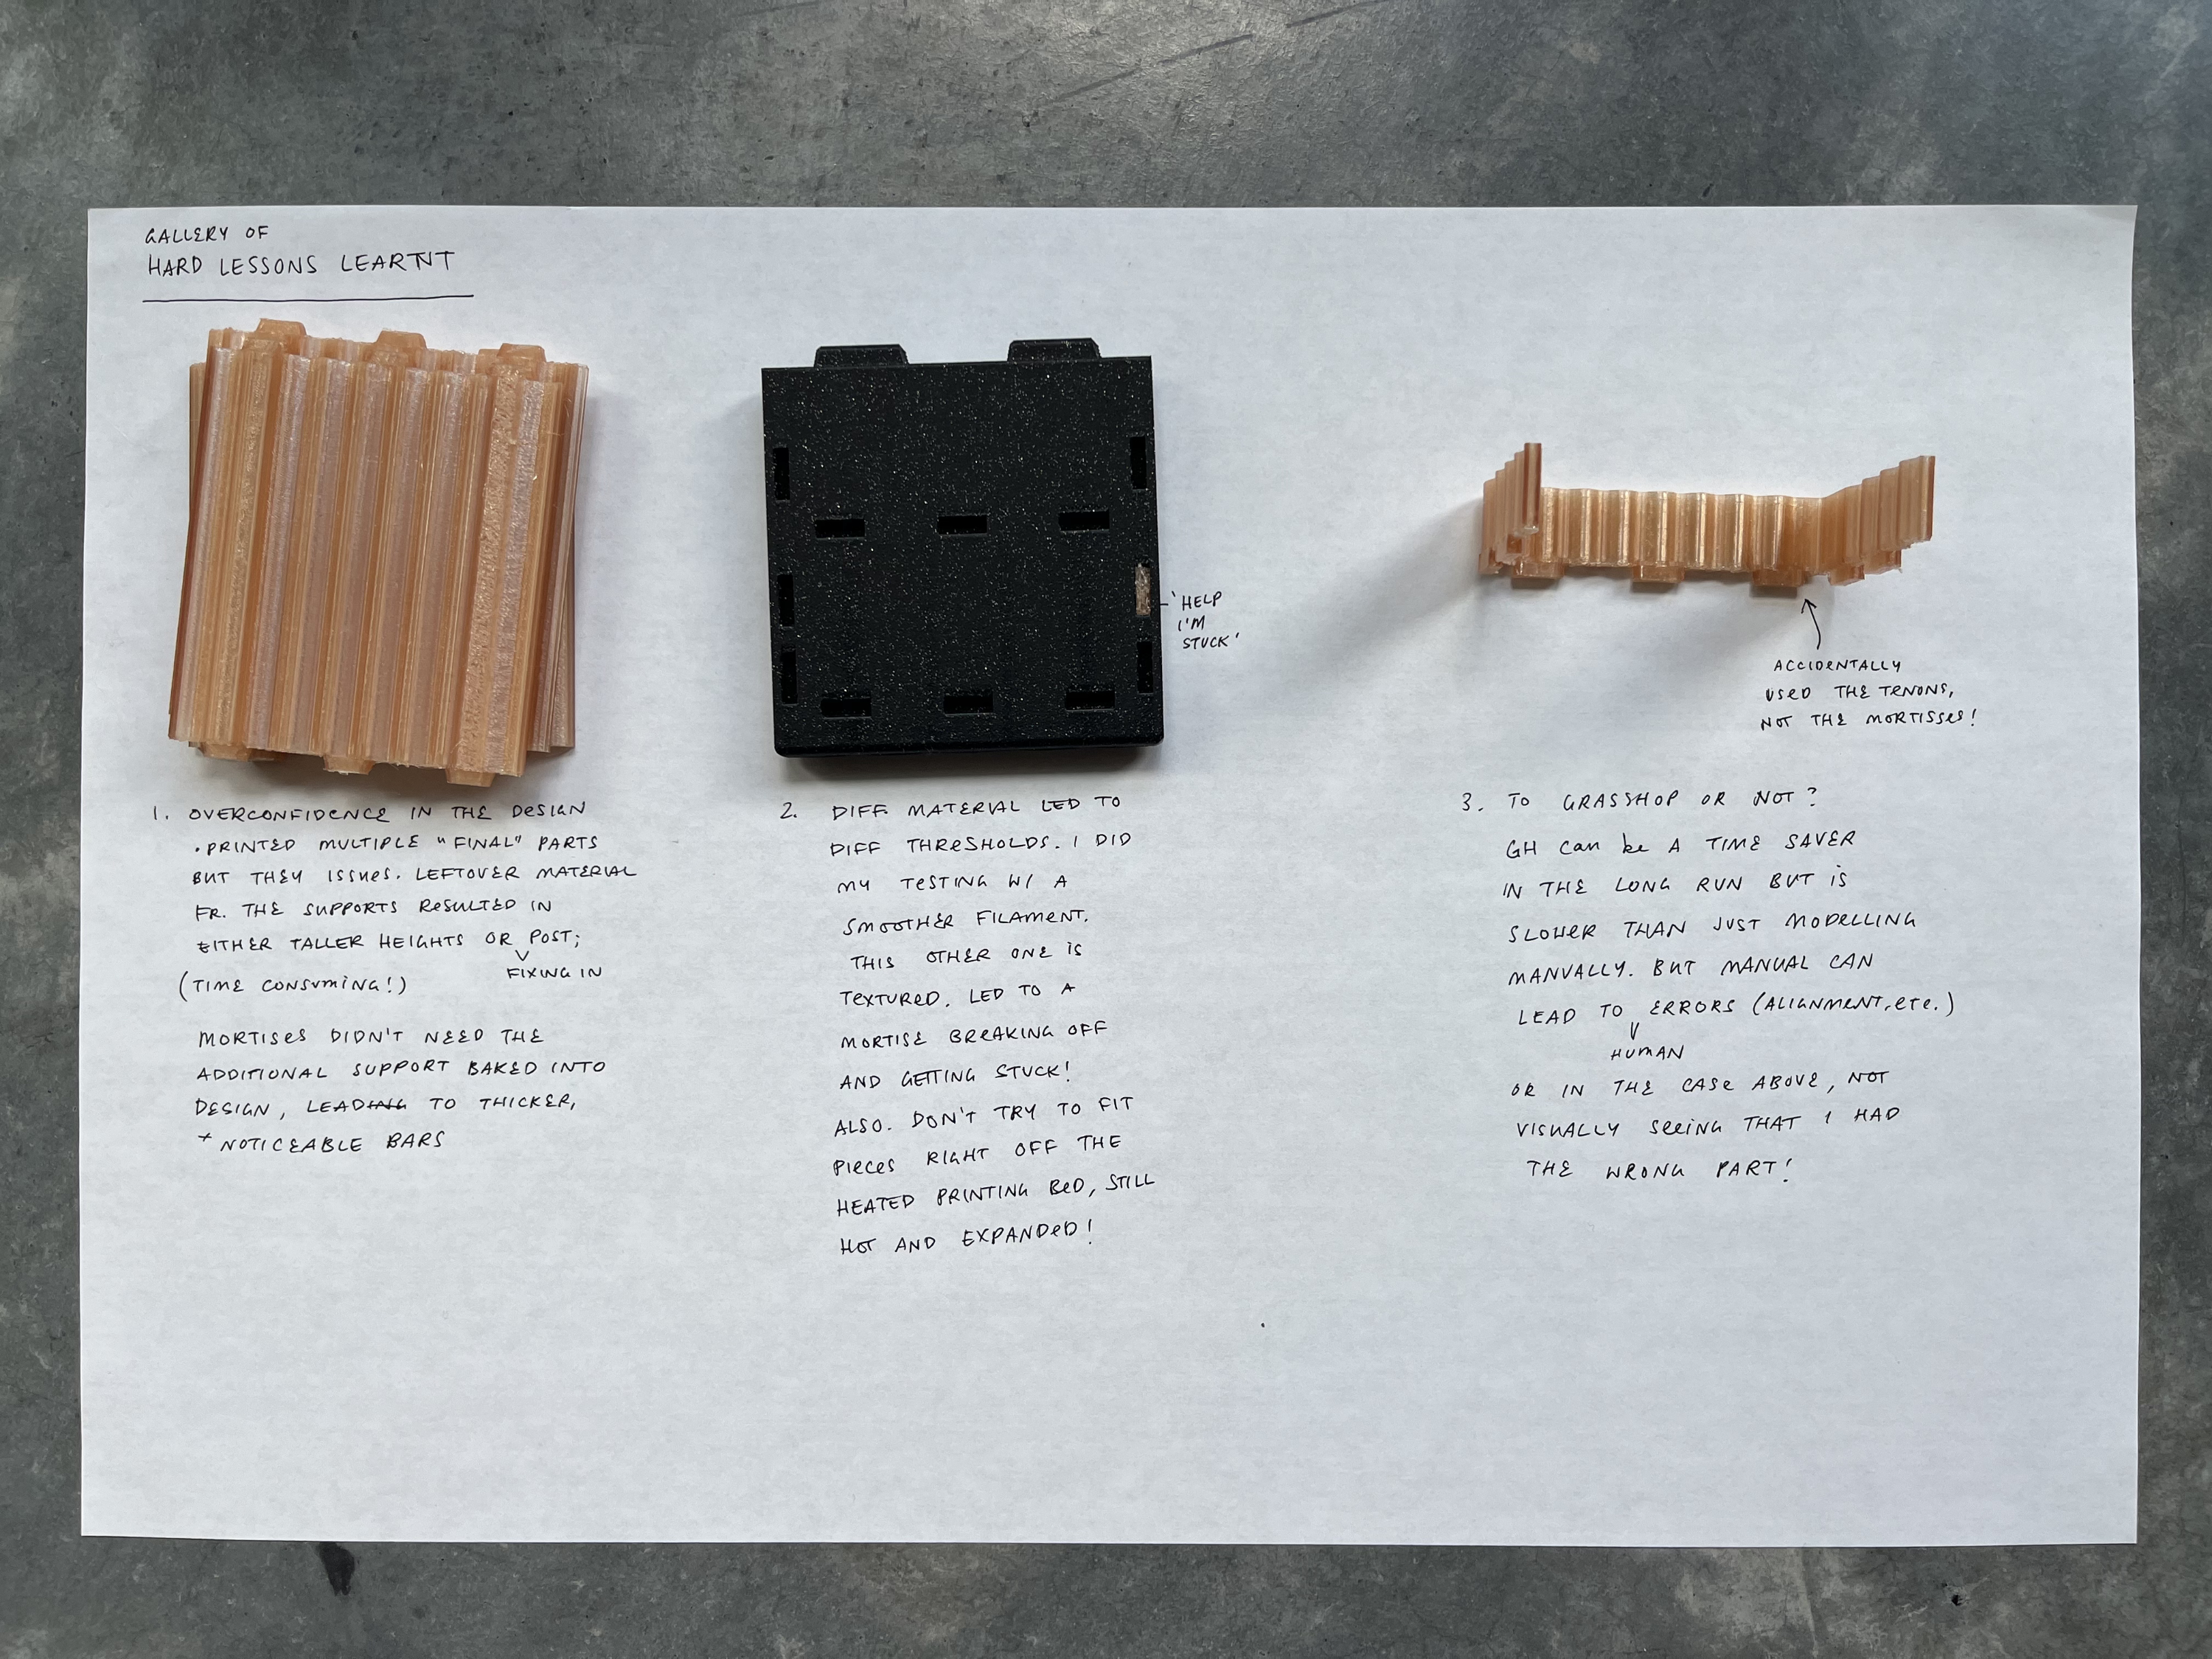 GALLERY OF
HARD LESSONS LEARTNT
'HELP
I'M
STUCK'
ACCIDENTALLY
USED THE TENONS,
NOT THE MORTISSES!
1. OVERCONFIDENCE IN THE DESIGN
• PRINTED MULTIPLE "FINAL" PARTS
BUT THEY ISSUES. LEFTOVER MATERIAL
FR. THE SUPPORTS RESULTED IN
EITHER TALLER HEIGHTS OR POST;
FIXING IN
(TIME CONSUMING!)
MORTISES DIDN'T NEED THE
ADDITIONAL SUPPORT BAKED INTO
DESIGN, LEADING TO THICKER,
+ NOTICEABLE BARS
2. DIFF. MATERIAL LED TO
DIFF THRESHOLDS. I DID
MY TESTING W/ A
SMOOTHER FILAMENT.
THIS OTHER ONE IS
TEXTURED. LED TO A
MORTISE BREAKING OFF
AND GETTING STUCK!
ALSO. DON'T TRY TO FIT
PIECES RIGHT OFF THE
HEATED PRINTING BED, STILL
HOT AND EXPANDED!
3. TO GRASSHOP OR NOT?
GH CAN be A TIME SAVER
IN THE LONG RUN BUT IS
SLOWER THAN JUST MODELLING
MANUALLY. BUT MANUAL CAN
LEAD TO ERRORS (ALIGNMENT, ETC.)
HUMAN
OR IN THE CASE ABOVE, NOT
VISUALLY SEEING THAT I HAD
THE WRONG PART!